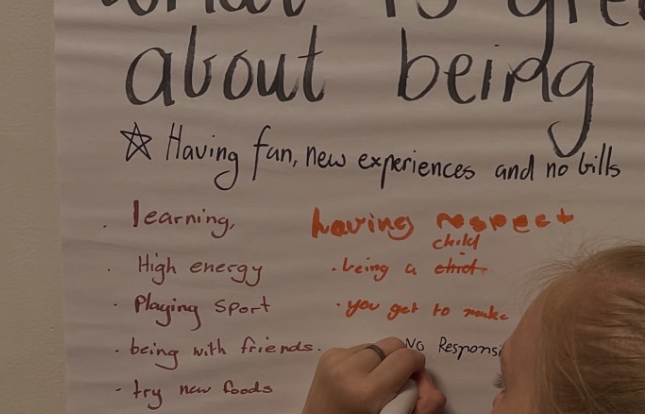 what is gre
about being
Having fun, new experiences and no bills
· learning,
· High energy
· Playing sport
· being with friends.
· try new foods
having respect
child
· being a chid.
· you get to make
No Responsi